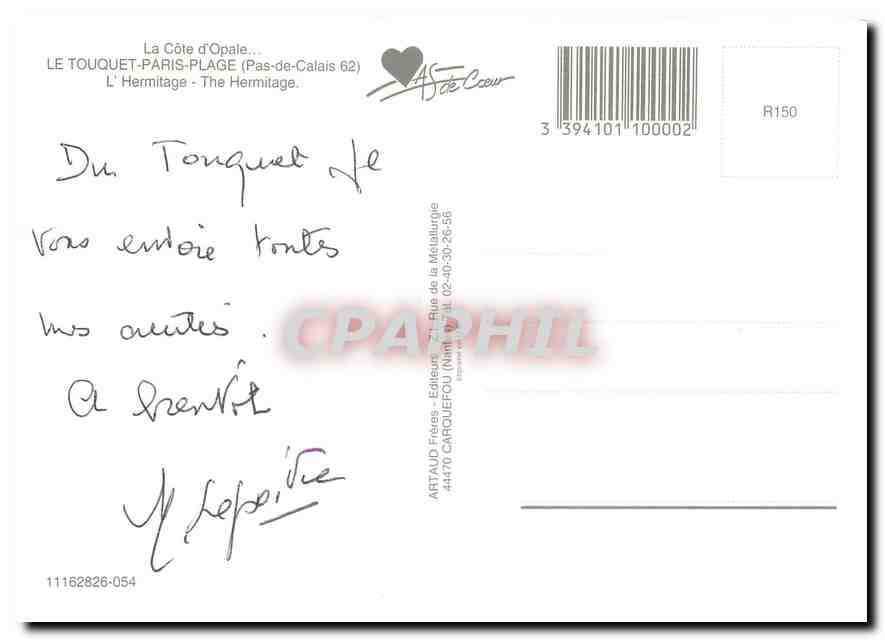 La Côte d'Opale...
LE TOUQUET-PARIS-PLAGE (Pas-de-Calais 62)
L' Hermitage - The Hermitage.
AS de Cœur
3 394101 100002
R150
Du Touquet Je
vous envoie toutes
mes amitiés.
A bientôt
M Lepoivre
ARTAUD Frères - Editeurs - Z.I. Rue de la Métallurgie
44470 CARQUEFOU (Nantes) Tél. 02-40-30-26-56
CPAPHIL
11162826-054